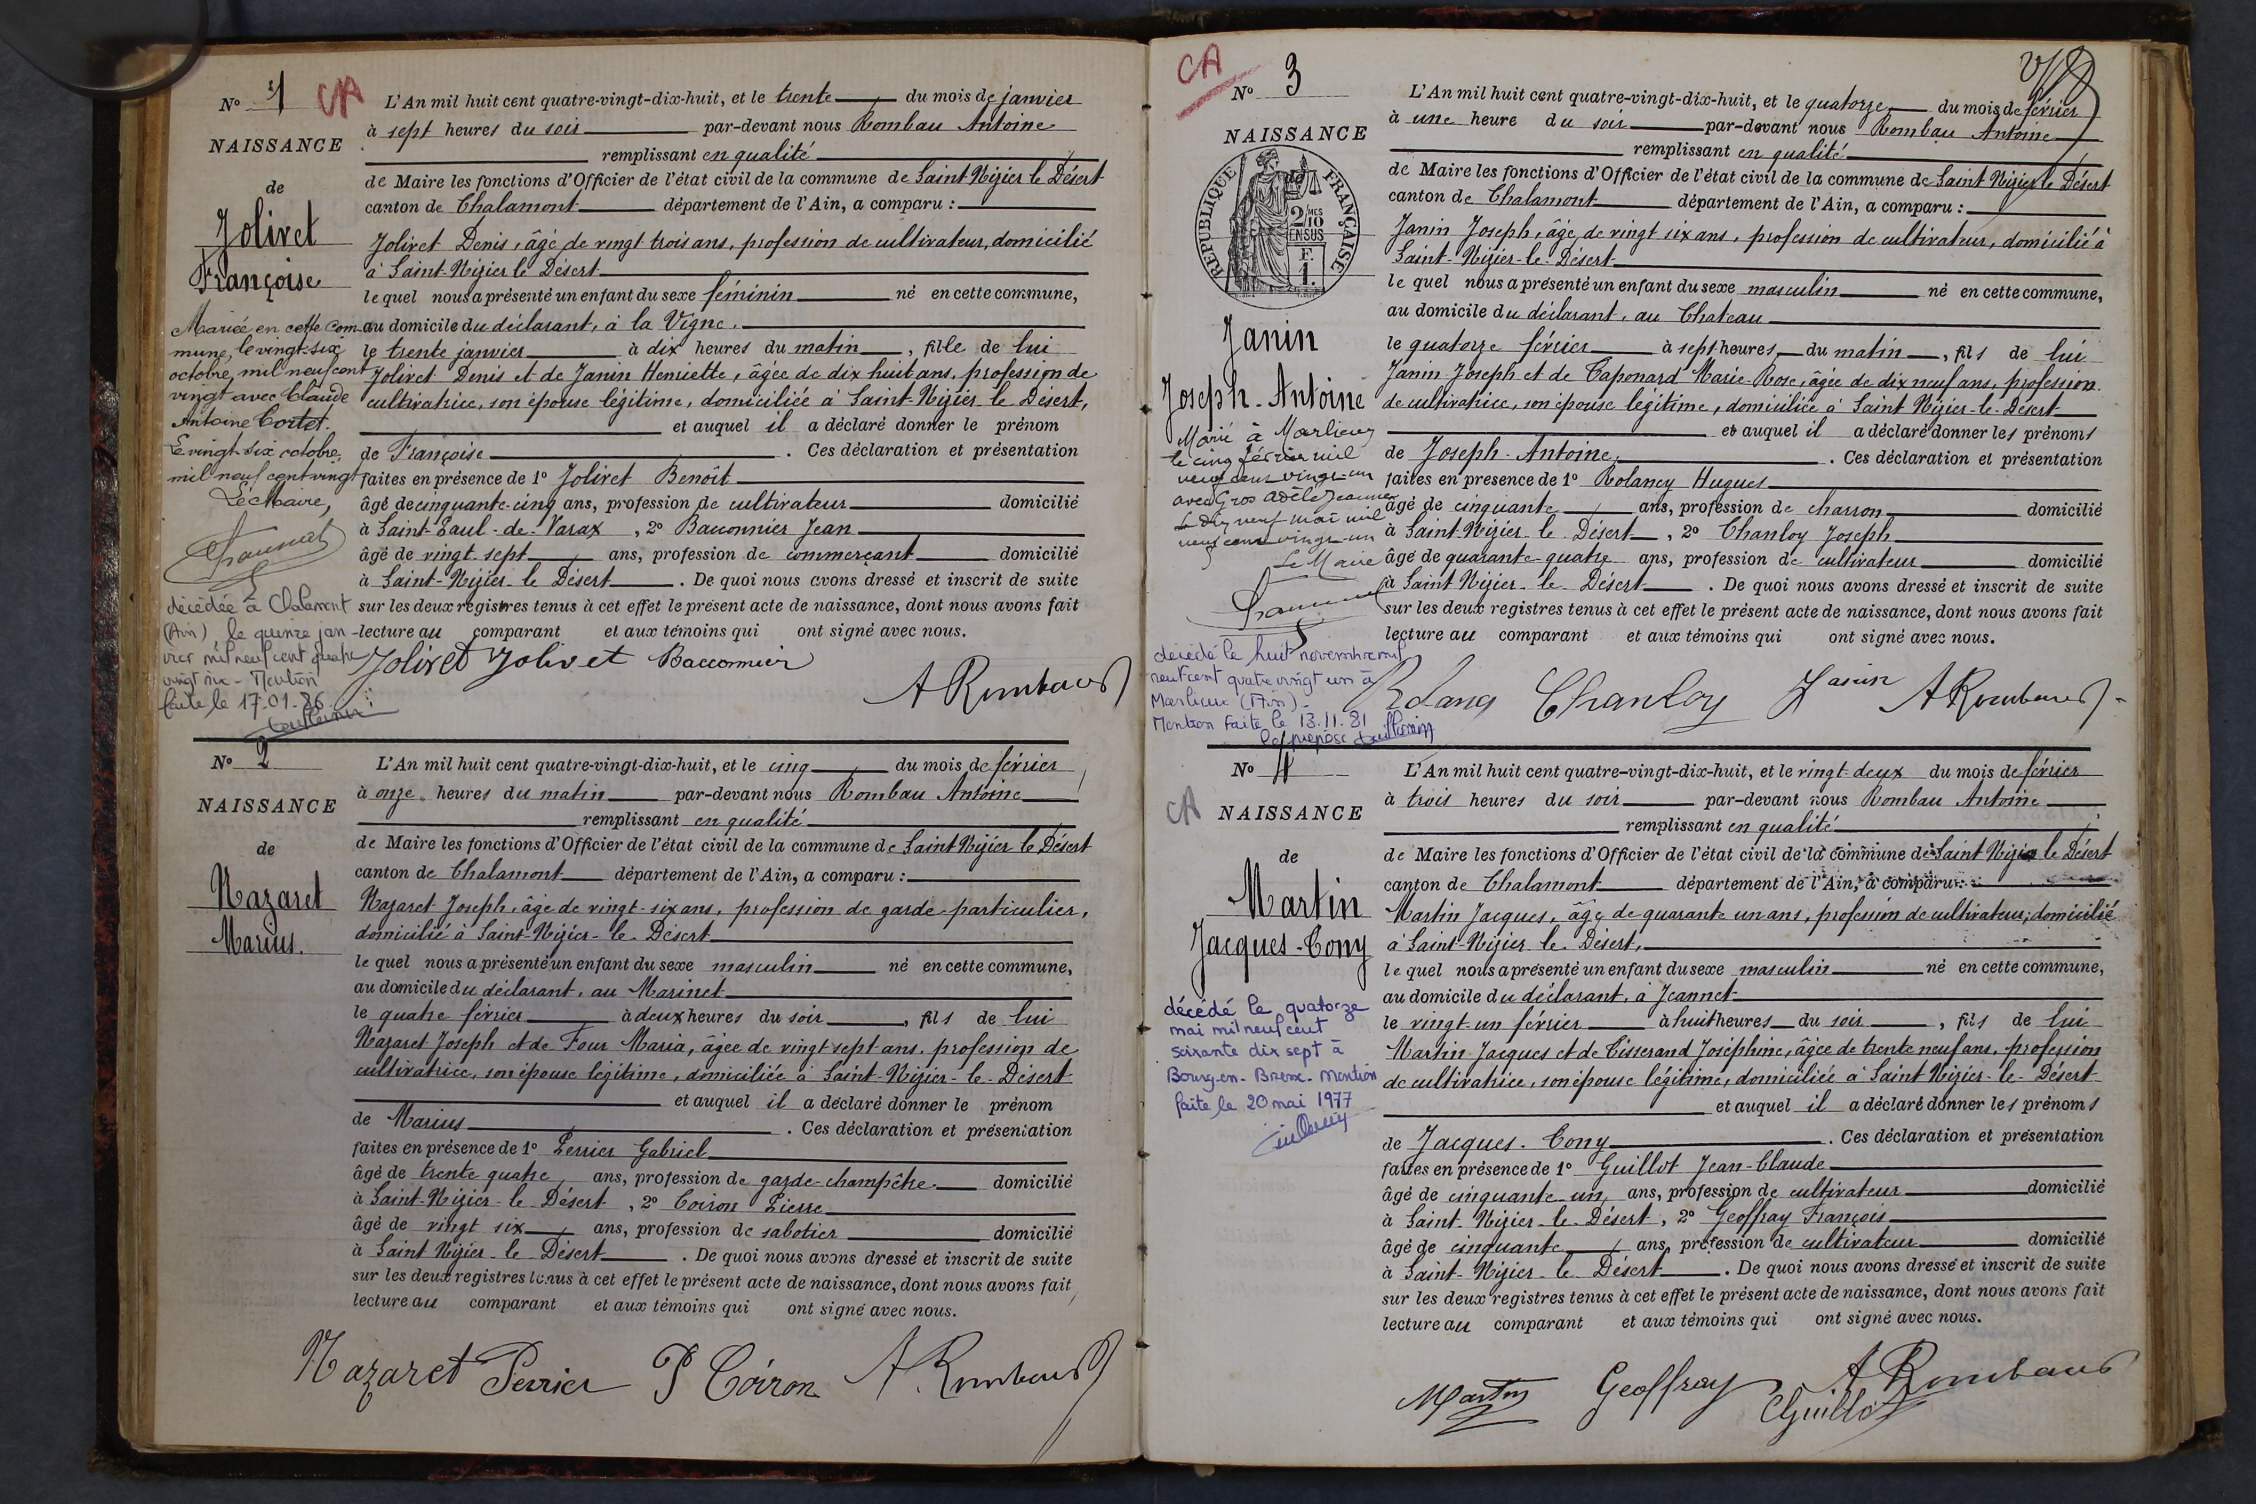 N° 1
CA
NAISSANCE
de
Jolivet
Françoise
Mariée en cette com-
mune, le vingt-six
octobre, mil neuf cent
vingt avec Claude
Antoine Cortet.
Le vingt six octobre,
mil neuf cent vingt
Le Maire,
décédée à Chalamont
(Ain), le quinze jan-
vier mil neuf cent quatre
vingt six - Mention
faite le 17.01.86
L'An mil huit cent quatre-vingt-dix-huit, et le trente du mois de janvier
à sept heures du soir par-devant nous Rombau Antoine
remplissant en qualité
de Maire les fonctions d'Officier de l'état civil de la commune de Saint Nizier le Désert
canton de Chalamont département de l'Ain, a comparu :
Jolivet Denis, âgé de vingt trois ans, profession de cultivateur, domicilié
à Saint-Nizier le Désert
le quel nous a présenté un enfant du sexe féminin né en cette commune,
au domicile du déclarant, à la Vigne.
le trente janvier à dix heures du matin, fille de lui
Jolivet Denis et de Janin Henriette, âgée de dix huit ans, profession de
cultivatrice, son épouse légitime, domiciliée à Saint-Nizier le Désert,
et auquel il a déclaré donner le prénom
de Françoise. Ces déclaration et présentation
faites en présence de 1° Jolivet Benoît
âgé de cinquante-cinq ans, profession de cultivateur domicilié
à Saint-Paul-de-Varax, 2° Baconnier Jean
âgé de vingt sept ans, profession de commerçant domicilié
à Saint-Nizier-le Désert. De quoi nous avons dressé et inscrit de suite
sur les deux registres tenus à cet effet le présent acte de naissance, dont nous avons fait
lecture au comparant et aux témoins qui ont signé avec nous.
Jolivet Jolivet Bacconnier
A Rombau
N° 2
NAISSANCE
de
Nazaret
Marius.
L'An mil huit cent quatre-vingt-dix-huit, et le cinq du mois de février
à onze heures du matin par-devant nous Rombau Antoine
remplissant en qualité
de Maire les fonctions d'Officier de l'état civil de la commune de Saint Nizier le Désert
canton de Chalamont département de l'Ain, a comparu :
Nazaret Joseph, âgé de vingt-six ans, profession de garde-particulier,
domicilié à Saint-Nizier-le-Désert
le quel nous a présenté un enfant du sexe masculin né en cette commune,
au domicile du déclarant, au Marinet
le quatre février à deux heures du soir, fils de lui
Nazaret Joseph et de Four Maria, âgée de vingt sept ans, profession de
cultivatrice, son épouse légitime, domiciliée à Saint-Nizier-le-Désert
et auquel il a déclaré donner le prénom
de Marius. Ces déclaration et présentation
faites en présence de 1° Perrier Gabriel
âgé de trente quatre ans, profession de garde-champêtre domicilié
à Saint-Nizier-le Désert, 2° Coiron Pierre
âgé de vingt six ans, profession de sabotier domicilié
à Saint Nizier-le Désert. De quoi nous avons dressé et inscrit de suite
sur les deux registres tenus à cet effet le présent acte de naissance, dont nous avons fait
lecture au comparant et aux témoins qui ont signé avec nous.
Nazaret Perrier P Coiron A Rombau
CA
N° 3
NAISSANCE
de
RÉPUBLIQUE FRANÇAISE
2/10
MES
EN SUS
F.
1.
Janin
Joseph-Antoine
Marié à Marlieux
le cinq février mil
neuf cent vingt-un
avec Gros Adèle Jeanne
Le dix neuf mai mil
neuf cent vingt-un
Le Maire
décédé le huit novembre mil
neuf cent quatre vingt un à
Marlieux (Ain) -
Mention faite le 13.11.81
Le préposé
L'An mil huit cent quatre-vingt-dix-huit, et le quatorze du mois de février
à une heure du soir par-devant nous Rombau Antoine
remplissant en qualité
de Maire les fonctions d'Officier de l'état civil de la commune de Saint Nizier le Désert
canton de Chalamont département de l'Ain, a comparu :
Janin Joseph, âgé de vingt six ans, profession de cultivateur, domicilié à
Saint-Nizier-le-Désert
le quel nous a présenté un enfant du sexe masculin né en cette commune,
au domicile du déclarant, au Chateau
le quatorze février à sept heures du matin, fils de lui
Janin Joseph et de Taponard Marie-Rose, âgée de dix neuf ans, profession
de cultivatrice, son épouse légitime, domiciliée à Saint Nizier-le-Désert
et auquel il a déclaré donner les prénoms
de Joseph-Antoine. Ces déclaration et présentation
faites en présence de 1° Rolancy Hugues
âgé de cinquante ans, profession de charron domicilié
à Saint Nizier-le Désert, 2° Chanloy Joseph
âgé de quarante-quatre ans, profession de cultivateur domicilié
à Saint Nizier-le-Désert. De quoi nous avons dressé et inscrit de suite
sur les deux registres tenus à cet effet le présent acte de naissance, dont nous avons fait
lecture au comparant et aux témoins qui ont signé avec nous.
Chanloy Janin A Rombau
N° 4
CA
NAISSANCE
de
Martin
Jacques-Tony
décédé le quatorze
mai mil neuf cent
soixante dix sept à
Bourg-en-Bresse. Mention
faite le 20 mai 1977
L'An mil huit cent quatre-vingt-dix-huit, et le vingt-deux du mois de février
à trois heures du soir par-devant nous Rombau Antoine
remplissant en qualité
de Maire les fonctions d'Officier de l'état civil de la commune de Saint Nizier le Désert
canton de Chalamont département de l'Ain, a comparu :
Martin Jacques, âgé de quarante un ans, profession de cultivateur, domicilié
à Saint-Nizier-le-Désert,
le quel nous a présenté un enfant du sexe masculin né en cette commune,
au domicile du déclarant, à Jeannet
le vingt-un février à huit heures du soir, fils de lui
Martin Jacques et de Tisserand Joséphine, âgée de trente neuf ans, profession
de cultivatrice, son épouse légitime, domiciliée à Saint Nizier-le-Désert
et auquel il a déclaré donner les prénoms
de Jacques-Tony. Ces déclaration et présentation
faites en présence de 1° Guillot Jean-Claude
âgé de cinquante-un ans, profession de cultivateur domicilié
à Saint-Nizier-le-Désert, 2° Geoffray François
âgé de cinquante ans, profession de cultivateur domicilié
à Saint-Nizier-le Désert. De quoi nous avons dressé et inscrit de suite
sur les deux registres tenus à cet effet le présent acte de naissance, dont nous avons fait
lecture au comparant et aux témoins qui ont signé avec nous.
Martin Geoffray A Rombau
Guillot